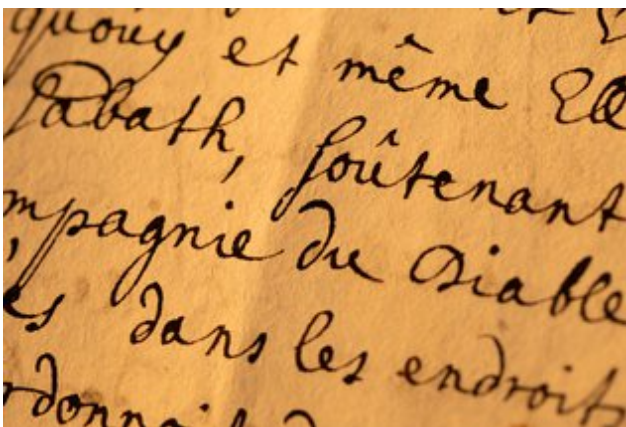 quouy et même
Sabath, soûtenant
mpagnie du Diable
es dans les endroits
rdonnait